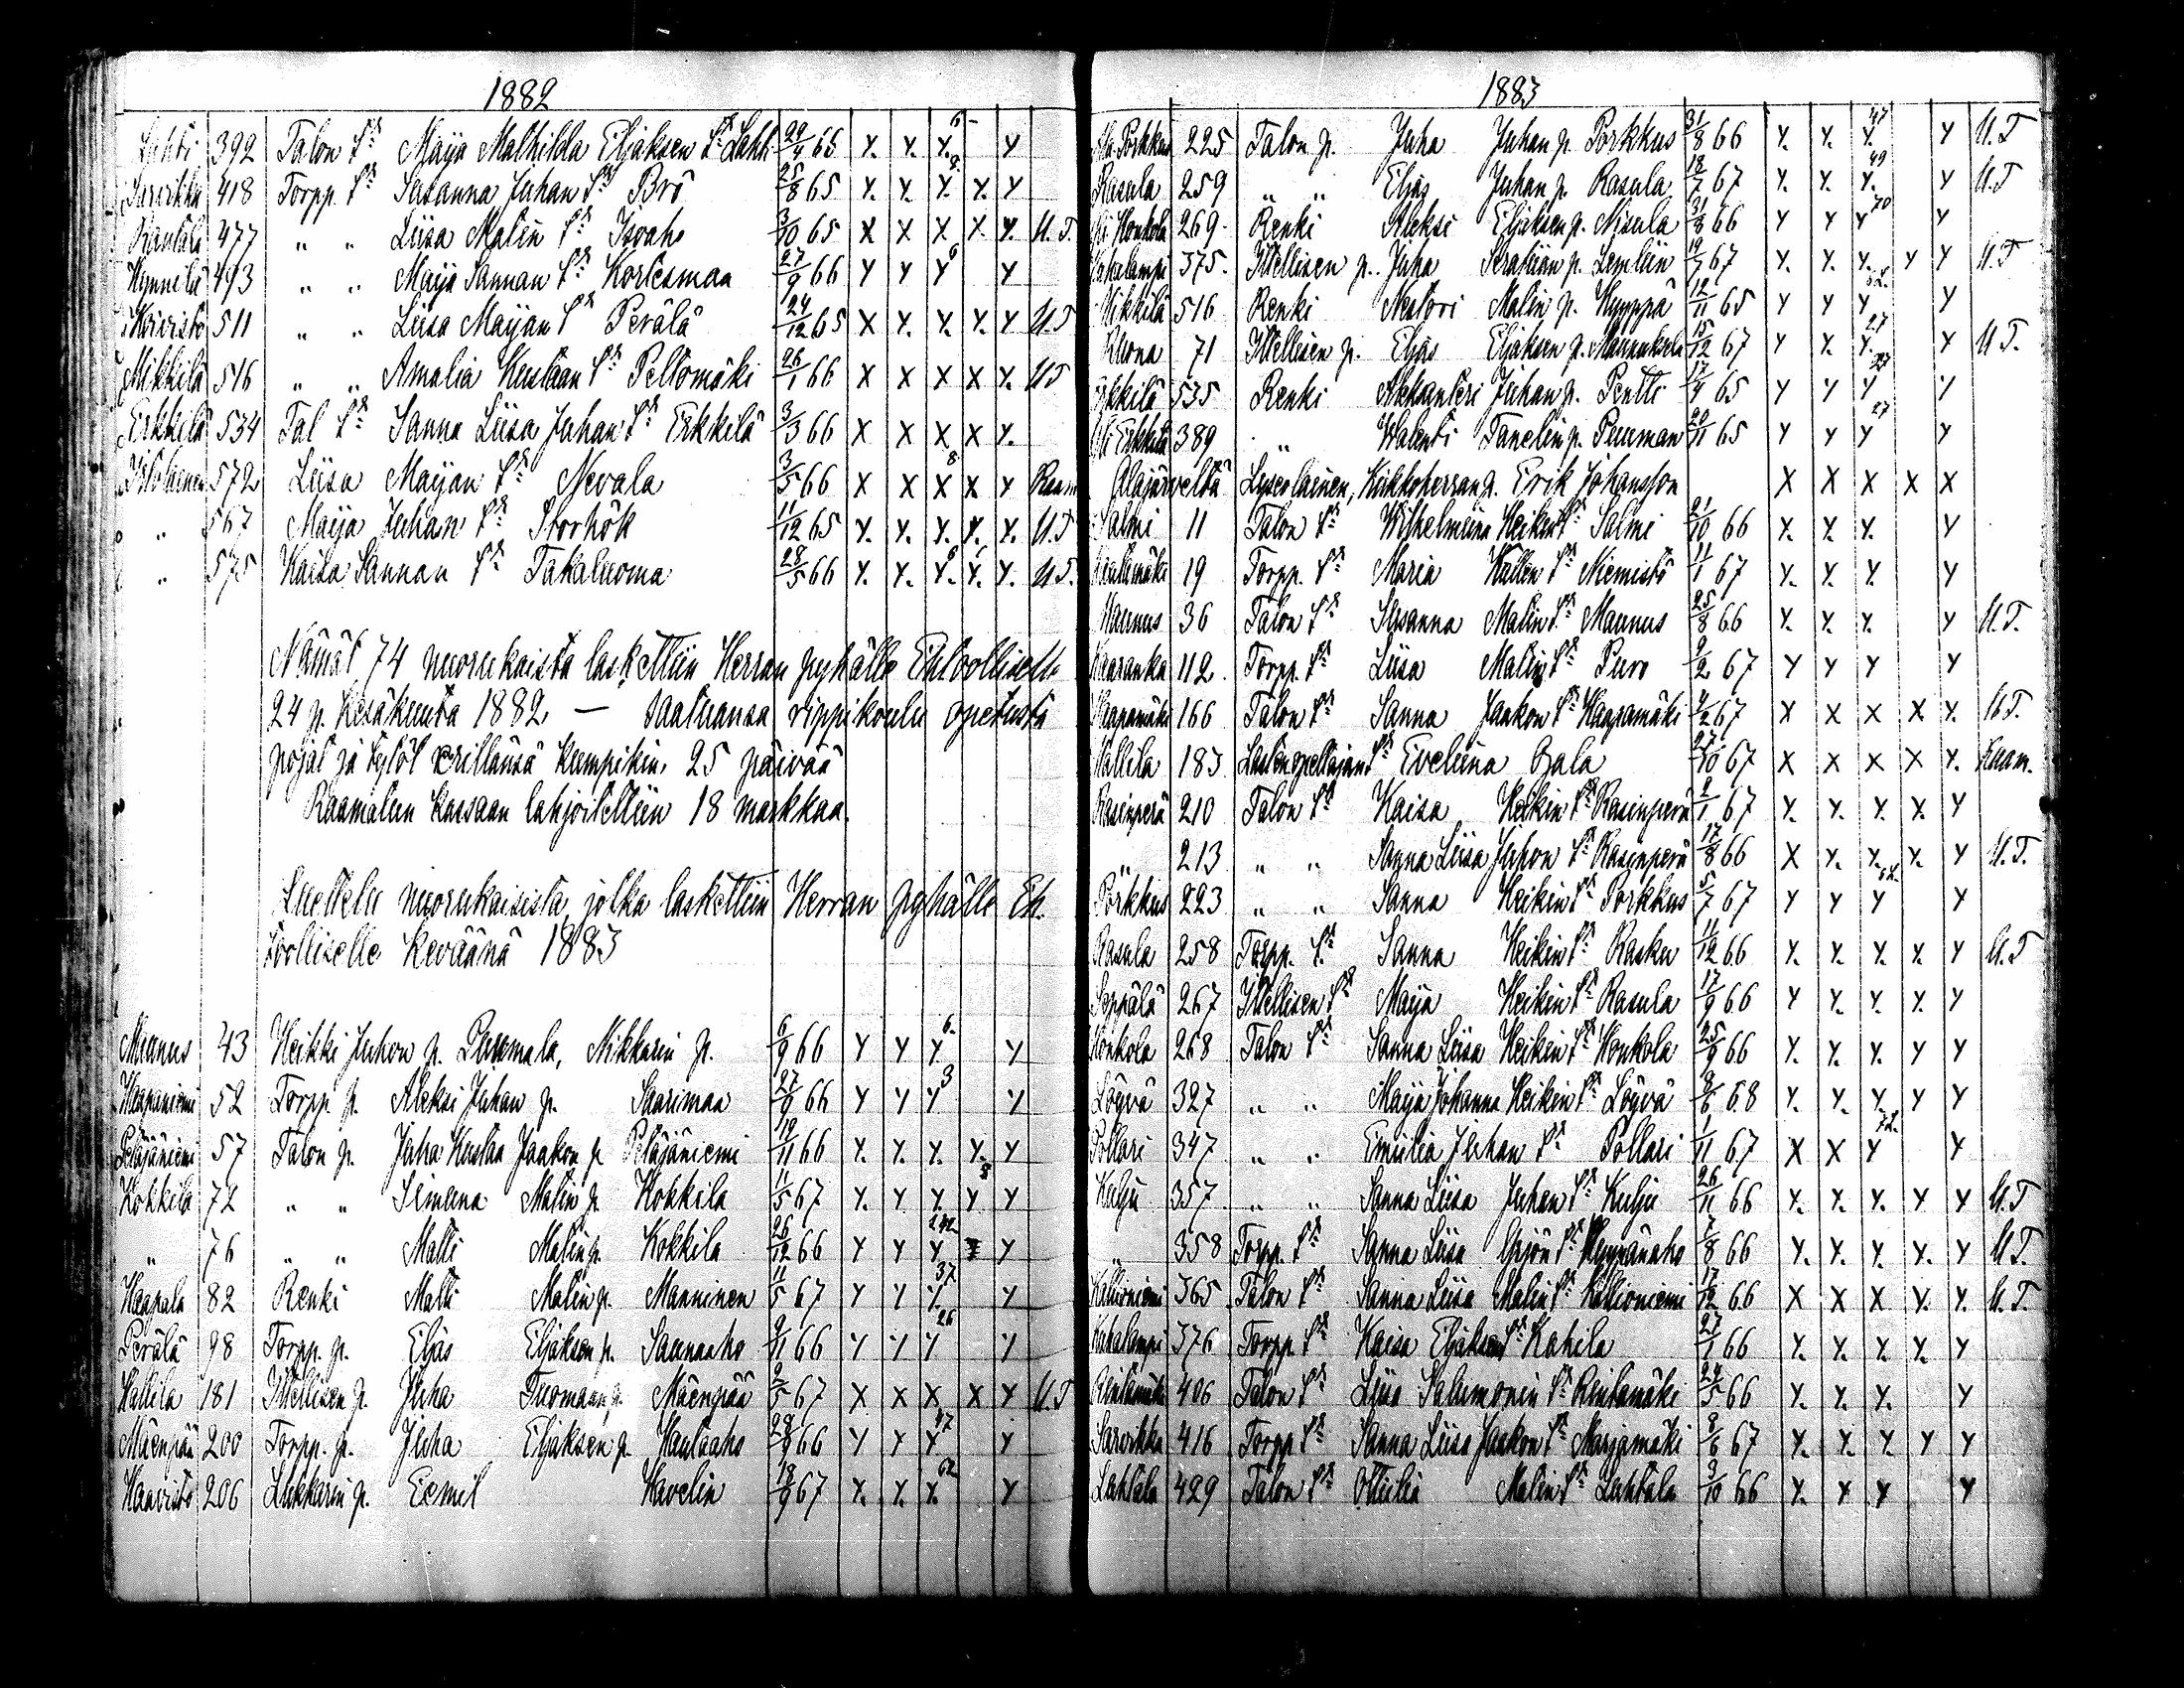 1882
Lahti 392 Talon t:r Maija Mathilda Eljaksen t:r Lahti 29/4 65 x. x. x. 6 x
Sarvikka 418 Torpp. t:r Susanna Juhan t:r Brö 25/8 65 x. x. x. 8 x. x
Rantala 477 " " Liisa Matin t:r Isoaho 3/10 65 x x x x x. U.T.
493 " " Maija Sannan t:r Kortesmaa 27/9 66 x x x 6 x
Koivisto 511 " " Liisa Maijan t:r Perälä 24/12 65 x x. x. x. x U.T
Mikkilä 516 " " Amalia Kustaan t:r Peltomäki 26/1 66 x x x x x. U.T
Erkkilä 534 Tal t:r Sanna Liisa Juhan t:r Erkkilä 3/3 66 x x x x x.
572 Liisa Maijan t:r Nevala 3/5 66 x x x 8 x x Raam
" 567 Maija Juhan t:r Storhök 11/12 65 x. x. x. x. x. U.T
" 575 Kaisa Sannan t:r Takaluoma 28/5 66 x. x. x. 6 x. x. U.T.
Nämät 74 nuorukaista laskettiin Herran pyhälle Ehtoolliselle
24 p. Kesäkuuta 1882 — saatuansa rippikoulu opetusta
pojat ja tytöt erillänsä kumpikin 25 päivää
Raamatun kassaan lahjoitettiin 18 markkaa.
Luettelu nuorukaisista, jotka laskettiin Herran pyhälle Eh-
toolliselle keväänä 1883
Maunus 43 Heikki Juhon p. Puumala, Nikkarin p. 6/9 66 x x x 6. x
Haapaniemi 52 Torpp. p. Aleksi Juhan p. Saarimaa 27/9 66 x x x 3 x
Petäjäniemi 57 Talon p. Juha Kustaa Jaakon p Petäjäniemi 19/11 66 x. x. x. x. x
Kokkila 72 " " Iimana Matin p. Kokkila 11/5 67 x. x x x 8 x
" 76 " " Matti Matin p. Kokkila 26/12 66 x x x x
Haapala 82 Renki Matti Matin p. Manninen 11/5 67 x x x 37 x
Perälä 98 Torpp. p. Eljas Eljaksen p. Saunaaho 9/11 66 x x x 26 x
Hallila 181 Itellisen p. Juha Tuomaan p. Mäenpää 2/5 67 x x x x x U.T
Mäenpää 200 Torpp. p. Juha Eljaksen p. Hautaaho 29/9 66 x x x 47 x
Haavisto 206 Lukkarin p. Eemil Havelin 18/9 67 x. x. x. 62 x
1883
Porkkus 225 Talon p. Juha Juhan p. Porkkus 31/8 66 x. x. x. 47 x U.T
Rasula 259 " " Eljas Juhan p. Rasula 18/7 67 x. x. x. 49 x U.T
Honkola 269 Renki Aleksi Eljaksen p. Nisula 31/8 66 x x x 70 x
Kahalampi 375. Itellisen p. Juha Serafiian p. Lemtiin 19/7 67 x. x. x. x x U.T
Mikkilä 516 Renki Nestori Matin p. Hyyppä 12/11 65 x x x 52. x
Ruona 71 Itellisen p. Eljas Eljaksen p. Mannuksela 15/12 67 x x. x. 27 x U.T.
535 Renki Aleksanteri Juhan p. Pentti 17/4 65 x x x 27 x
Erkkilä 389 " Walenti Tanelin p. Puuman 20/11 65 x x x 27 x
Alajärveltä Lyseolainen, Kirkkoherran p. Erik Johansson x x x x x
Salmi 11 Talon t:r Wilhelmiina Heikin t:r Salmi 21/10 66 x. x. x. x
19 Torpp. t:r Maria Kallen t:r Niemistö 11/1 67 x. x. x. x
Maunus 36 Talon t:r Susanna Matin t:r Maunus 25/8 66 x. x. x. x U.T.
Kaaranka 112. Torpp. t:r Liisa Matin t:r Puro 9/2 67 x x x x
Haapamäki 166 Talon t:r Sanna Jaakon t:r Haapamäki 4/2 67 x x x x x. U.T.
Hallila 183 Lastenopettajan t:r Eveliina Ojala 27/10 67 x x x x x. Raam.
Rasinperä 210 Talon t:r Kaisa Heikin t:r Rasinperä 2/1 67 x. x. x. x. x
" 213 " " Sanna Liisa Juhon t:r Rasinperä 17/8 66 x x. x. x. x U.T.
Porkkus 223 " " Sanna Heikin t:r Porkkus 5/7 67 x x x 52. x
Rasula 258 Torpp. t:r Sanna Heikin t:r Rasku 11/12 66 x. x. x. x. x U.T
Seppälä 267 Itellisen t:r Maija Heikin t:r Rasula 17/9 66 x x. x. x. x
Honkola 268 Talon t:r Sanna Liisa Heikin t:r Honkola 25/9 66 x. x. x. x x
Löyvä 327 " " Maija Johanna Heikin t:r Löyvä 9/6 68 x. x. x. x x
Pollari 347 " " Emilia Juhan t:r Pollari 1/11 67 x x x 72. x
Kulju 357 " " Sanna Liisa Juhan t:r Kulju 26/11 66 x. x. x. x x U.T
" 358 Torpp. t:r Sanna Liisa Yrjön t:r 7/8 66 x. x. x. x. x U.T.
Kallioniemi 365 Talon t:r Sanna Liisa Matin t:r Kallioniemi 17/12 66 x x x x. x. U.T.
Kahalampi 376 Torpp. t:r Kaisa Eljaksen t:r Kahila 27/1 66 x. x. x. x. x
Rintamäki 406 Talon t:r Liisa Salumonin t:r Rintamäki 24/5 66 x. x. x. x
Sarvikka 416 Torpp t:r Sanna Liisa Jaakon t:r Marjamäki 8/6 67 x. x. x. x x
Lahtala 429 Talon t:r Ottiilia Matin t:r Lahtala 3/10 66 x. x x x